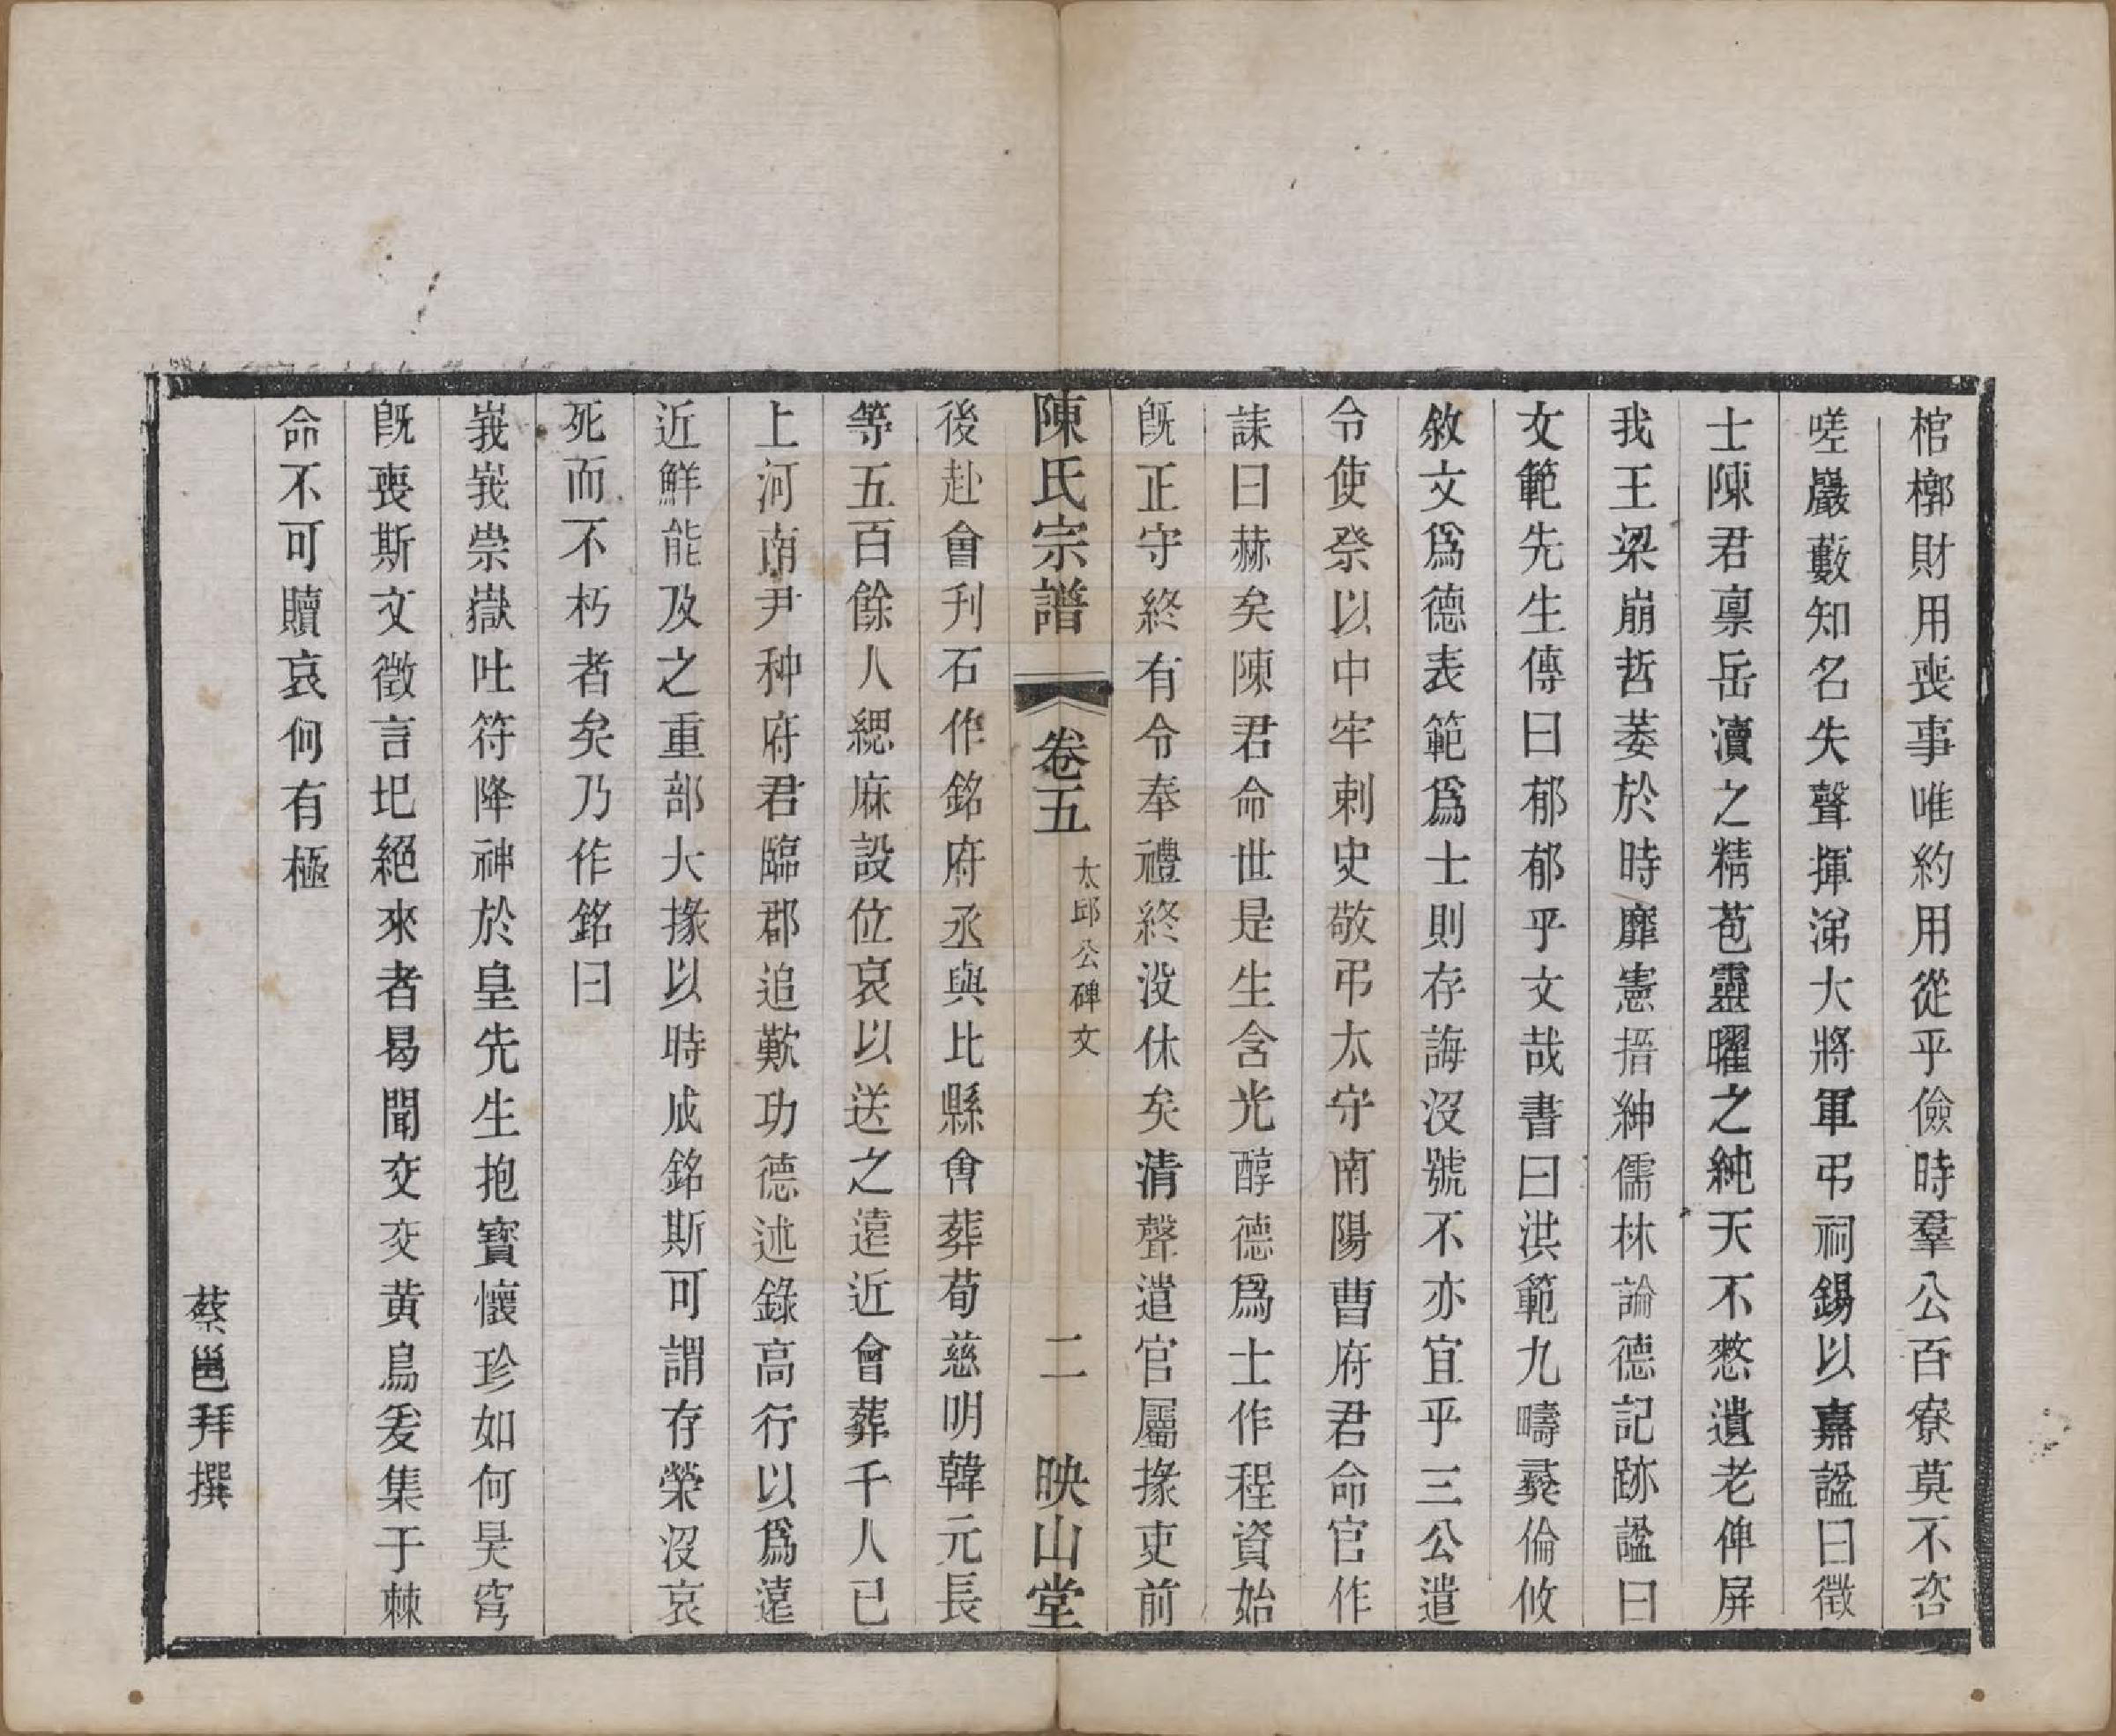 棺槨財用喪事唯約用從乎儉時羣公百寮莫不咨
嗟巖藪知名失聲揮涕大將軍弔祠錫以嘉謚曰徵
士陳君禀岳瀆之精苞靈曜之純天不憗遺老俾屏
我王梁崩哲萎於時靡憲搢紳儒林論德記跡謚曰
文範先生傳曰郁郁乎文哉書曰洪範九疇彛倫攸
敘文爲德表範爲士則存誨沒號不亦宜乎三公遣
令使祭以中牢刺史敬弔太守南陽曹府君命官作
誄曰赫矣陳君命世是生含光醇德爲士作程資始
旣正守終有令奉禮終没休矣清聲遣官屬掾吏前
陳氏宗譜 卷五 太邱公碑文 二 映山堂
後赴會刋石作銘府丞與比縣會葬荀慈明韓元長
等五百餘人緦麻設位哀以送之遠近會葬千人已
上河南尹种府君臨郡追歎功德述錄高行以爲遠
近鮮能及之重部大掾以時成銘斯可謂存榮沒哀
死而不朽者矣乃作銘曰
峩峩崇嶽吐符降神於皇先生抱寳懷珍如何昊穹
旣喪斯文微言圯絕來者曷聞交交黄鳥爰集于棘
命不可贖哀何有極
蔡邕拜撰